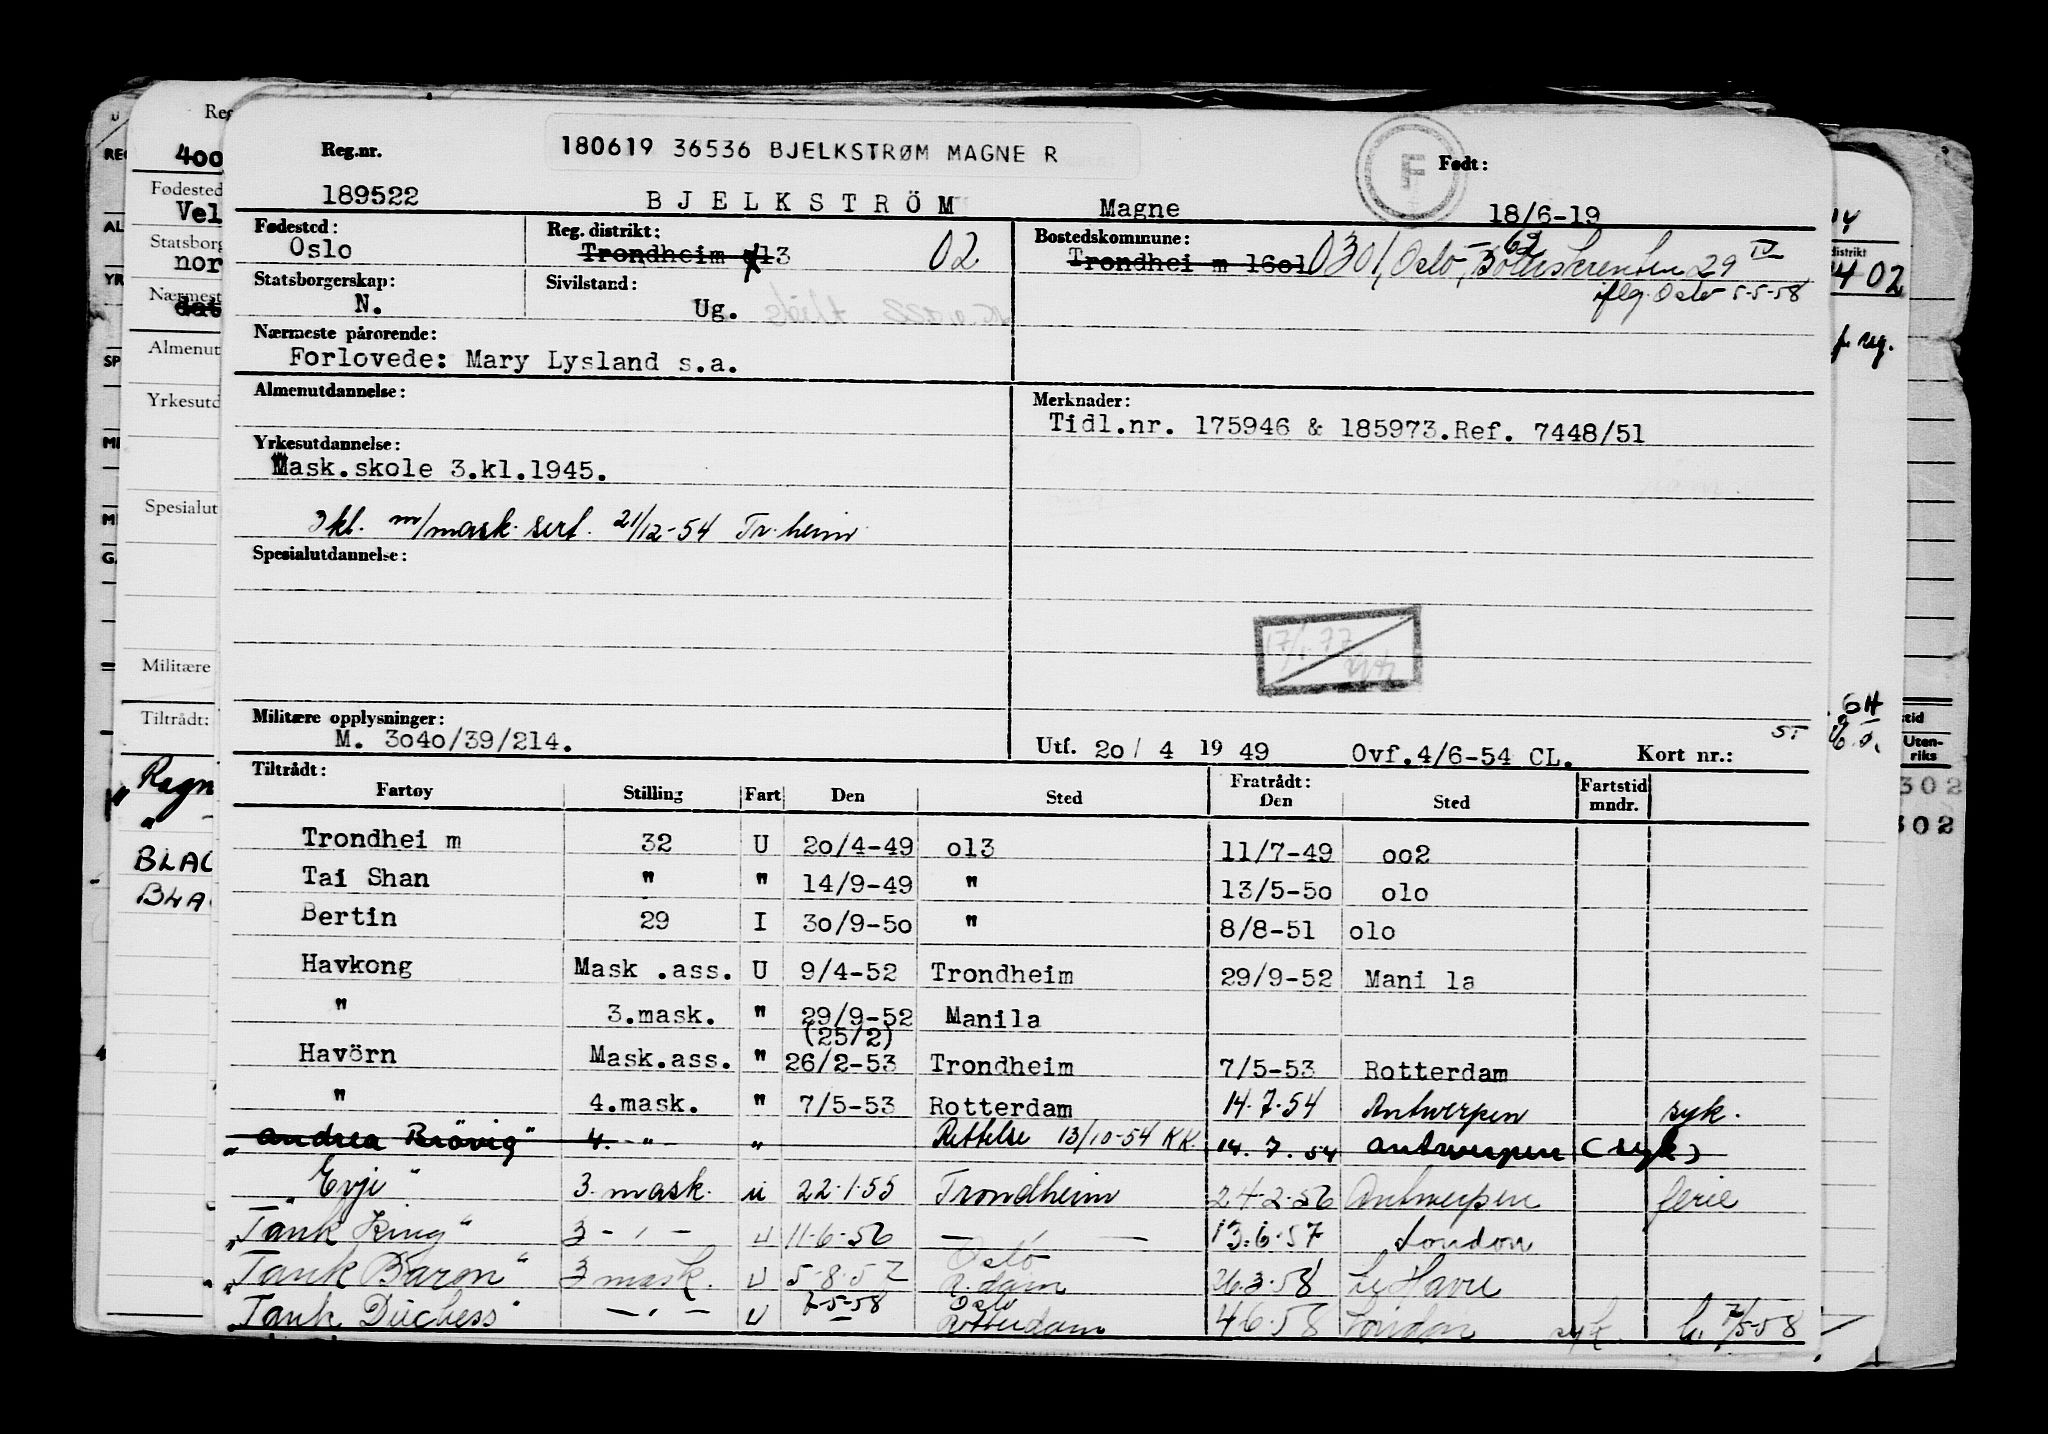 180619 36536 BJELKSTRØM MAGNE R
F
Reg.nr.
Født:
189522 BJELKSTRÖM Magne 18/6-19
Fødested: Oslo
Reg. distrikt: Trondheim 013 02
Bostedskommune: Trondhei m 16o1 0301, Oslo, 29 IV
62
flg. Oslo 5-5-58
Statsborgerskap: N.
Sivilstand: Ug.
Nærmeste pårørende:
Forlovede: Mary Lysland s.a.
Almenutdannelse:
Merknader:
Tidl.nr. 175946 & 185973.Ref. 7448/51
Yrkesutdannelse:
Mask.skole 3.kl.1945.
3 kl. m/mask. sert. 21/12-54 Tr.heim
Spesialutdannelse:
Militære opplysninger:
M. 3o4o/39/214.
Utf. 2o/ 4 19 49 Ovf.4/6-54 CL. Kort nr.:
ST
Tiltrådt: Fratrådt: Fartstid
Fartøy Stilling Fart Den Sted Den Sted mndr.
Trondhei m 32 U 2o/4-49 o13 11/7-49 oo2
Tai Shan " " 14/9-49 " 13/5-5o o1o
Bertin 29 I 3o/9-5o " 8/8-51 o1o
Havkong Mask .ass. U 9/4-52 Trondheim 29/9-52 Mani la
" 3.mask. " 29/9-52 Manila
(25/2)
Havörn Mask.ass. " 26/2-53 Trondheim 7/5-53 Rotterdam
" 4.mask. " 7/5-53 Rotterdam 14.7.54 Antwerpen syk.
"Andrea Brövig" 4. - " - " Rettelse 13/10-54 KK. 14.7.54 Antwerpen (syk)
"Evje" 3. mask. u 22.1.55 Trondheim 24.2.56 Antwerpen ferie
"Tank King" 3 - " - u 11.6.56 — " — 13.6.57 London
"Tank Baron" 3 mask. u 5.8.57 Oslo R.dam 26.3.58 Le Havre
"Tank Duchess" - " - u 7-5-58 Oslo Rotterdam 4.6.58 London syk. 7/5-58
Reg
400
Fødested
Vel
Statsborg
nor
Nærmest
Almenut
Yrkesutd
Spesialut
Militære
Tiltrådt:
"Ragn
BLAC
BLA
distrikt
402
p. reg.
Uten-
riks
302
302